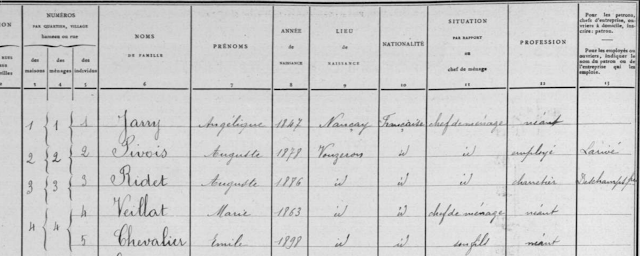 NUMÉROS
PAR QUARTIER, VILLAGE
hameau ou rue
des maisons
des ménages
des individus
NOMS
DE FAMILLE
PRÉNOMS
ANNÉE
de
NAISSANCE
LIEU
de
NAISSANCE
NATIONALITÉ
SITUATION
PAR RAPPORT
au
chef de ménage
PROFESSION
Pour les patrons, chefs d'entreprise, ouvriers à domicile, inscrire : patron.
Pour les employés ou ouvriers, indiquer le nom du patron ou de l'entreprise qui les emploie.
3 4 5 6 7 8 9 10 11 12 13
1 1 1 Jarry Angélique 1847 Nançay Française chef de ménage néant
2 2 2 Pivois Auguste 1878 Vouzeron id id employé Larivé
3 3 3 Ridet Auguste 1886 id id id charretier
4 4 4 Veillat Marie 1863 id id chef de ménage néant
5 Chevalier Emile 1898 id id son fils néant